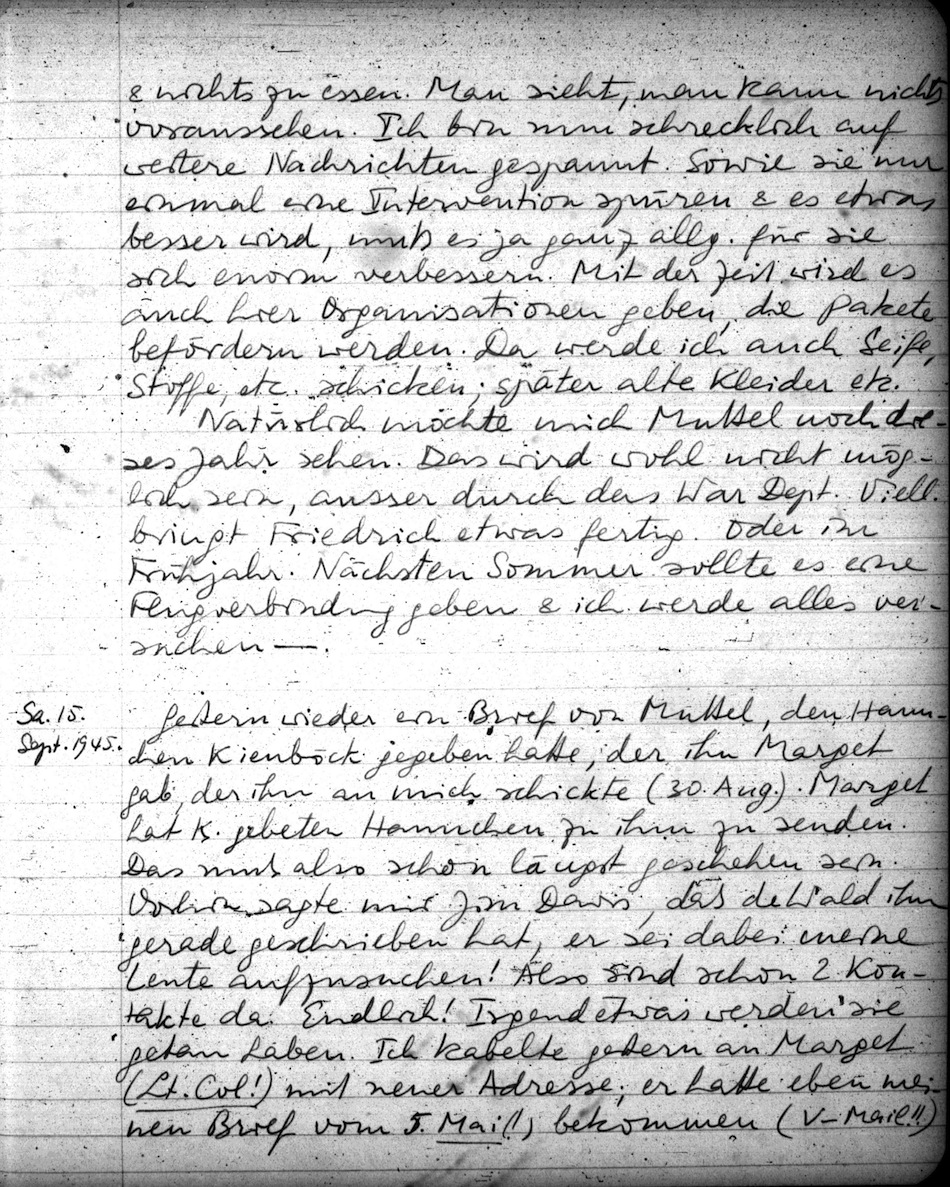 & nichts zu essen. Man sieht, man kann nichts
voraussehen. Ich bin nun schrecklich auf
weitere Nachrichten gespannt. Sowie sie nur
einmal eine Intervention spüren & es etwas
besser wird, muß es ja ganz allg. für sie
sich enorm verbessern. Mit der Zeit wird es
auch hier Organisationen geben, die Pakete
befördern werden. Da werde ich auch Seife,
Stoffe, etc. schicken; später alte Kleider etc.
Natürlich möchte mich Muttel noch die-
ses Jahr sehen. Das wird wohl nicht mög-
lich sein, ausser durch das War Dept. Viell.
bringt Friedrich etwas fertig. Oder im
Frühjahr. Nächsten Sommer sollte es eine
Flugverbindung geben & ich werde alles ver-
suchen —.
Sa. 15.
Sept. 1945.
Gestern wieder ein Brief von Muttel, den Hann-
chen Kienböck gegeben hatte, der ihn Marget
gab, der ihn an mich schickte (30. Aug.). Marget
hat K. gebeten Hannchen zu ihm zu senden.
Das muß also schon längst geschehen sein.
Vorhin sagte mir Jim Davis, daß deWald ihm
gerade geschrieben hat, er sei dabei meine
Leute aufzusuchen! Also sind schon 2 Kon-
takte da. Endlich! Irgend etwas werden sie
getan haben. Ich kabelte gestern an Marget
(Lt. Col!) mit neuer Adresse; er hatte eben mei-
nen Brief vom 5. Mai(!) bekommen (V-Mail!!)